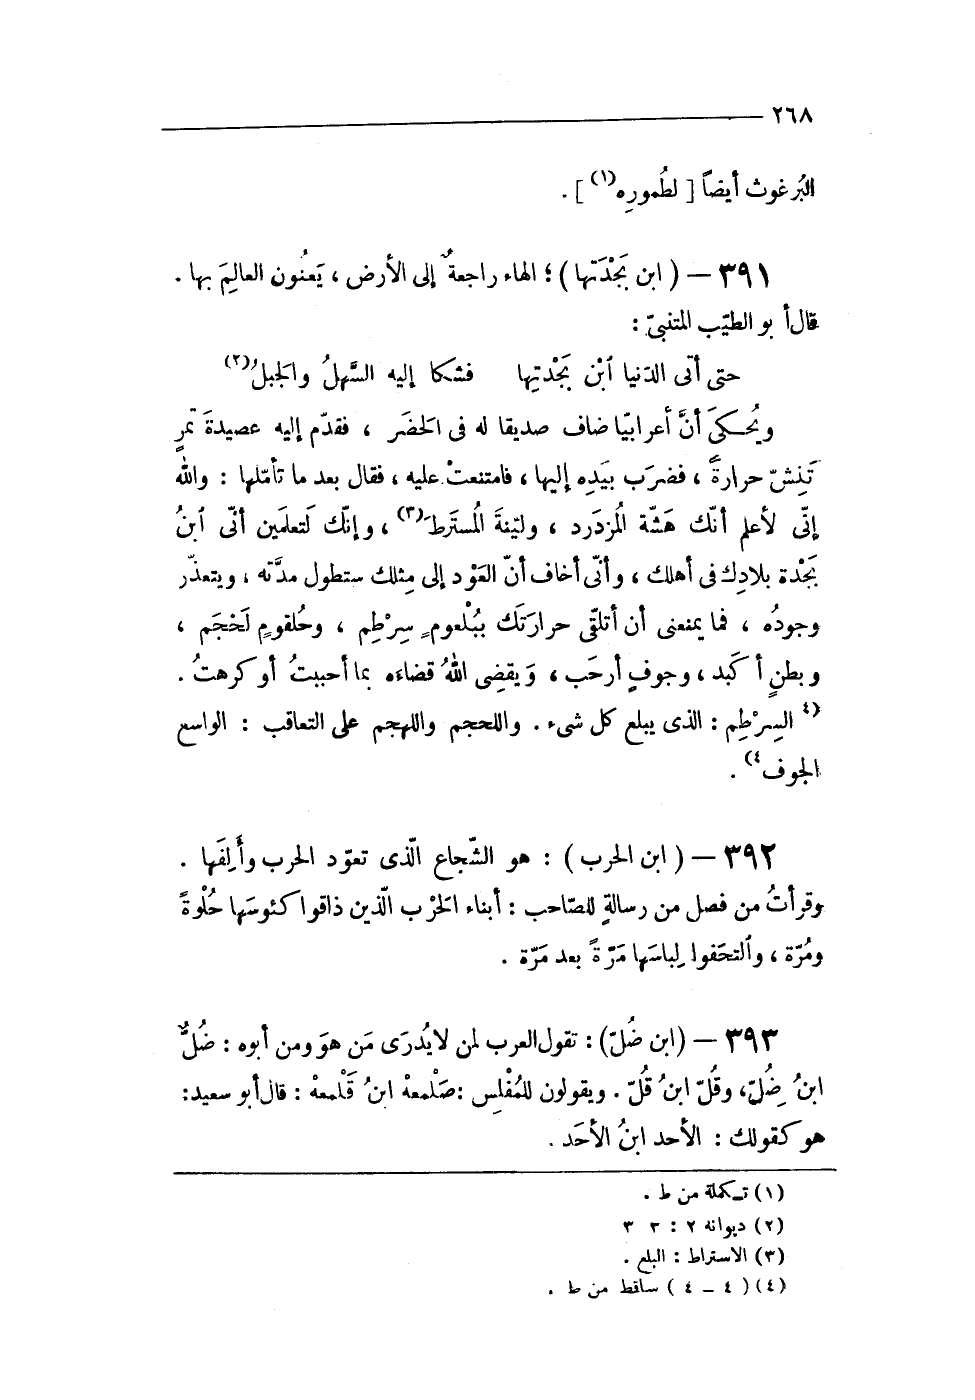 ٢٦٨
البُرغوث أيضاً [ لطُمورِه(١) ] .
٣٩١ – ( ابن بَجْدَتها ) ؛ الهاء راجعةٌ إلى الأرض ، يَعنُون العالِمَ بها .
قال أبو الطيّب المتنبيّ :
حتى أتى الدّنيا ٱبْن بَجْدتِها فشكا إليه السَّهلُ والجبلُ(٢)
ويُحكىَ أنَّ أعرابيّا ضاف صديقا له فى الحَضَر ، فقدّم إليه عصيدةَ تمرٍ
تَنِشّ حرارةً ، فضرَب بيَدِه إليها ، فامتنعتْ عليه ، فقال بعد ما تأمّلها : والله
إنّى لأعلم أنّك هَشّة المُزدَرد ، وليّنةَ المُستَرط(٣) ، وإنّك لَتعلَمين أنّى ٱبنُ
بَجْدة بلادِك فى أهلك ، وأنّى أخاف أنّ العَوْد إلى مِثلك ستطول مدّته ، ويتعذّر
وجودُه ، فما يمنعنى أن أتلقّى حرارَتَك ببُلْعومٍ سِرْطِم ، وحُلقومٍ لَحْجَم ،
وبطنٍ أكبَد ، وجوفٍ أرحَب ، وَيقضِى اللهُ قضاءَه بما أحببتُ أو كرهتُ .
(٤ السِرْطِم : الذى يبلع كل شىء . واللحجم واللهجم على التعاقب : الواسع
الجوف ٤) .
٣٩٢ – ( ابن الحرب ) : هو الشّجاع الّذى تعوّد الحرب وأَلِفَها .
وقرأتُ من فصل من رسالةٍ للصّاحب : أبناء الحَرْب الّذين ذاقوا كئوسَها حُلْوةً
ومُرّة ، وٱلتحَفوا لِباسَها مَرّةً بعد مَرّة .
٣٩٣ – (ابن ضُلّ) : تقول العرب لمن لا يُدرَى مَن هوَ ومن أبوه : ضُلٌّ
ابنُ ضُلّ، وقُلّ ابنُ قُلّ . ويقولون للمُفْلِس : صَلْمعهْ ابنُ قَلْمعهْ : قال أبو سعيد:
هو كقولك : الأحد ابنُ الأحَد .
(١) تكملة من ط .
(٢) ديوانه ٢ : ٣ ٣
(٣) الاستراط : البلع .
(٤) ( ٤ – ٤ ) ساقط من ط .